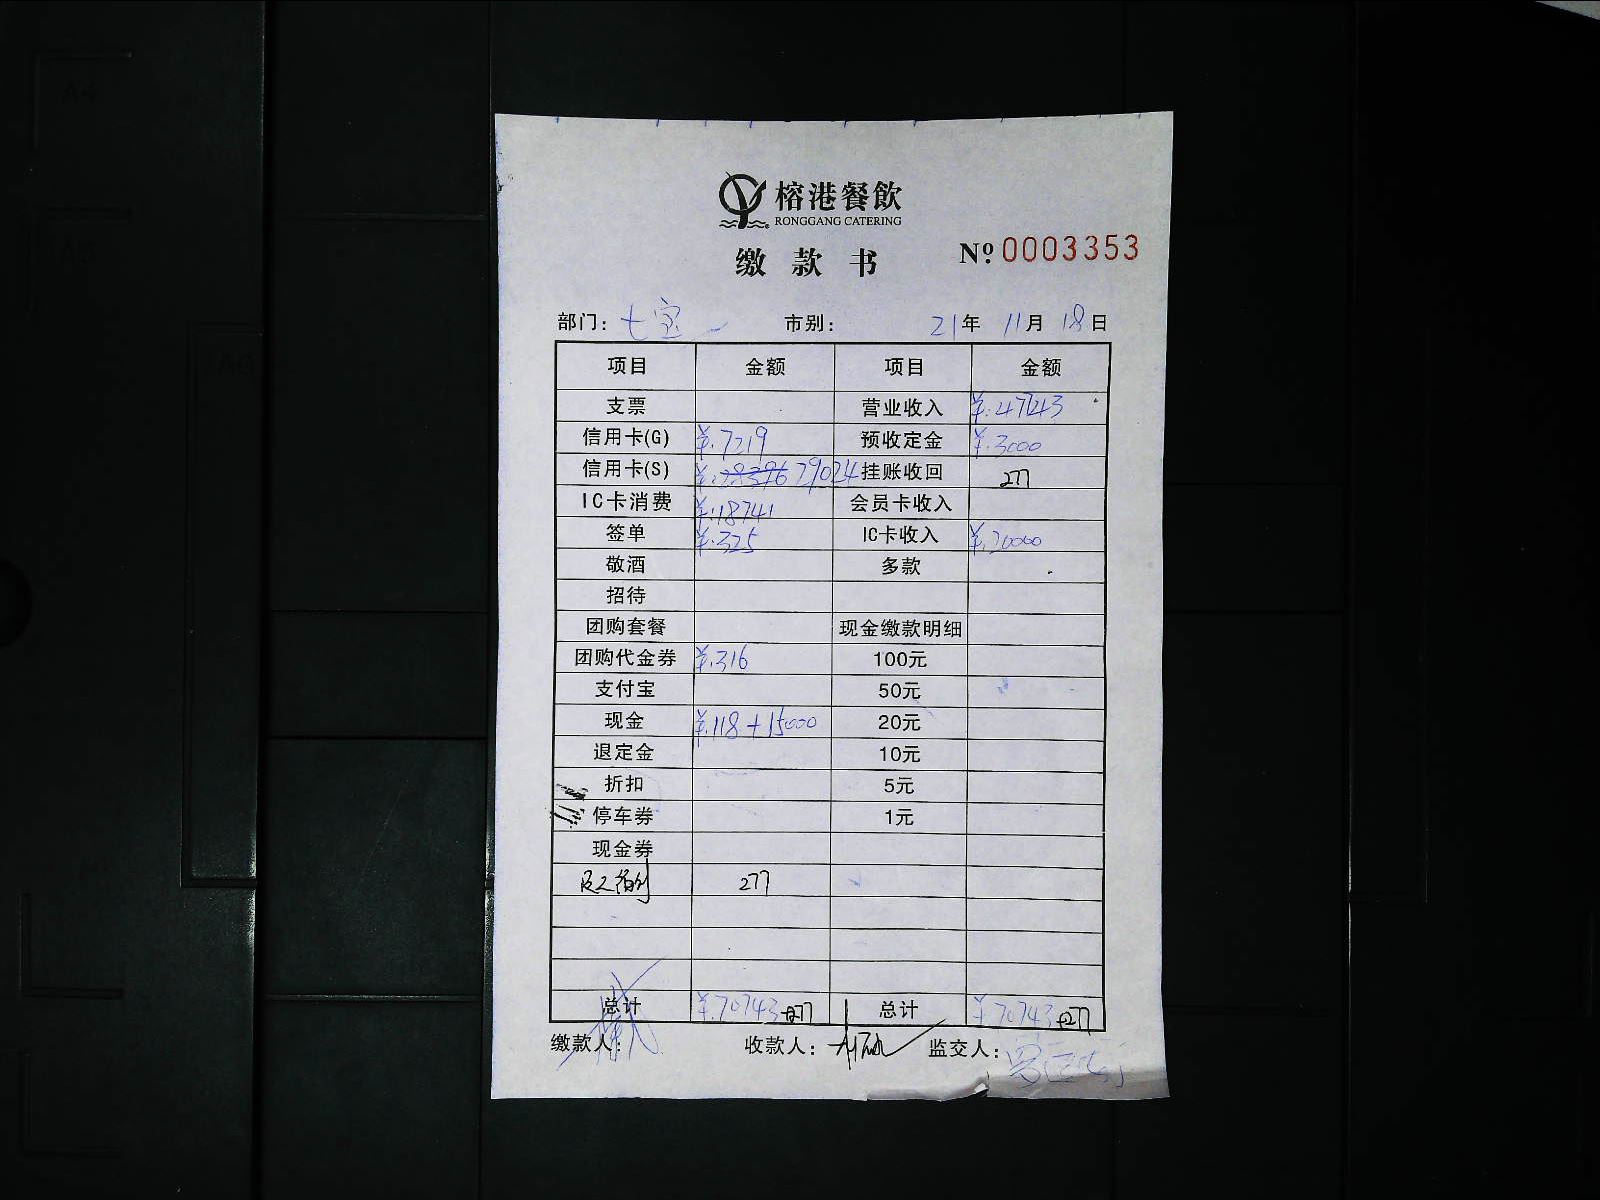 榕港餐飲
RONGGANG CATERING
缴款书 № 0003353
部门: 七宝 市别: 21年 11月 18日
项目 金额 项目 金额
支票 营业收入 ¥.47743
信用卡(G) ¥.7219 预收定金 ¥.3000
信用卡(S) ¥. 29024 挂账收回 277
IC卡消费 ¥.18741 会员卡收入
签单 ¥.325 IC卡收入 ¥.20000
敬酒 多款
招待
团购套餐 现金缴款明细
团购代金券 ¥.316 100元
支付宝 50元
现金 ¥.118+15000 20元
退定金 10元
折扣 5元
停车券 1元
现金券
277
总计 ¥.70743+277 总计 ¥70743+277
缴款人: 收款人: 监交人: